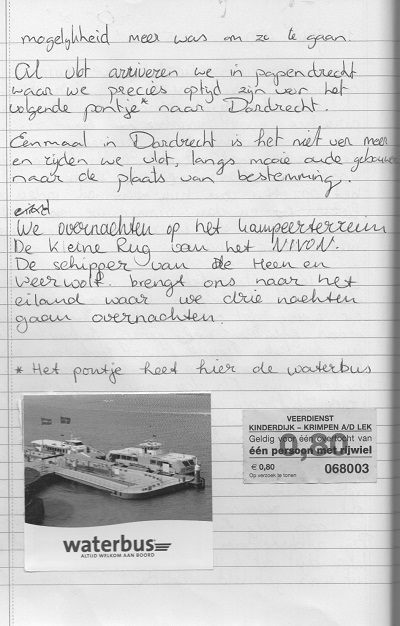 mogelijkheid meer was om zo te gaan.
Al vlot arriveren we in papendrecht
waar we precies optijd zijn voor het
volgende pontje* naar Dordrecht.
Eenmaal in Dordrecht is het niet ver meer
en rijden we vlot, langs mooie oude gebouwen
naar de plaats van bestemming.
We overnachten op het kampeerterrein
De kleine Rug van het NIVON.
De schipper van de Heen en
weerwolf brengt ons naar het
eiland waar we drie nachten
gaan overnachten.
* Het pontje heet hier de waterbus
waterbus
ALTIJD WELKOM AAN BOORD
VEERDIENST
KINDERDIJK – KRIMPEN A/D LEK
Geldig voor één overtocht van
één persoon met rijwiel
0,80
€ 0,80
068003
Op verzoek te tonen